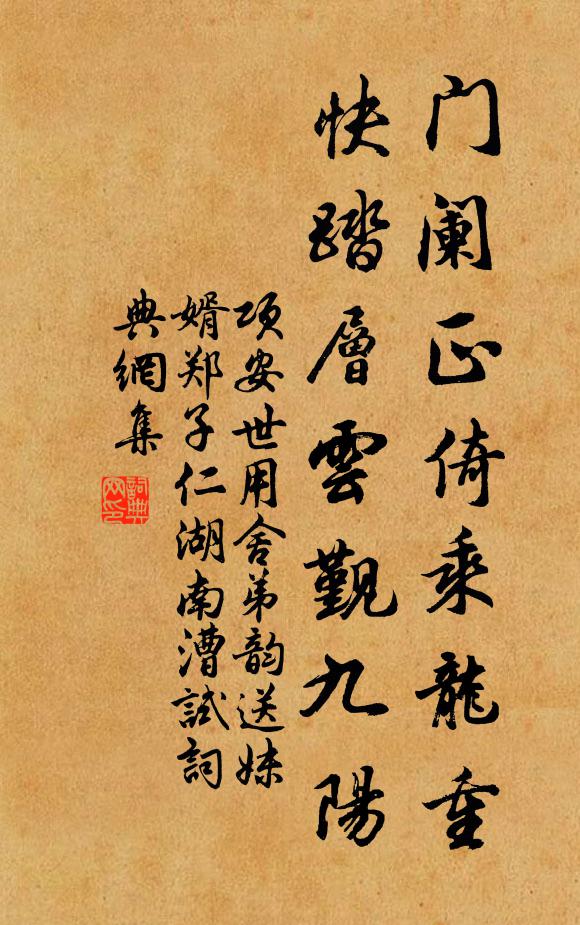 门阑正倚乘龙重
快踏層雲觐九陽
项安世用舍弟韵送妹
婿郑子仁湖南漕試詞
典網集
詞典网印